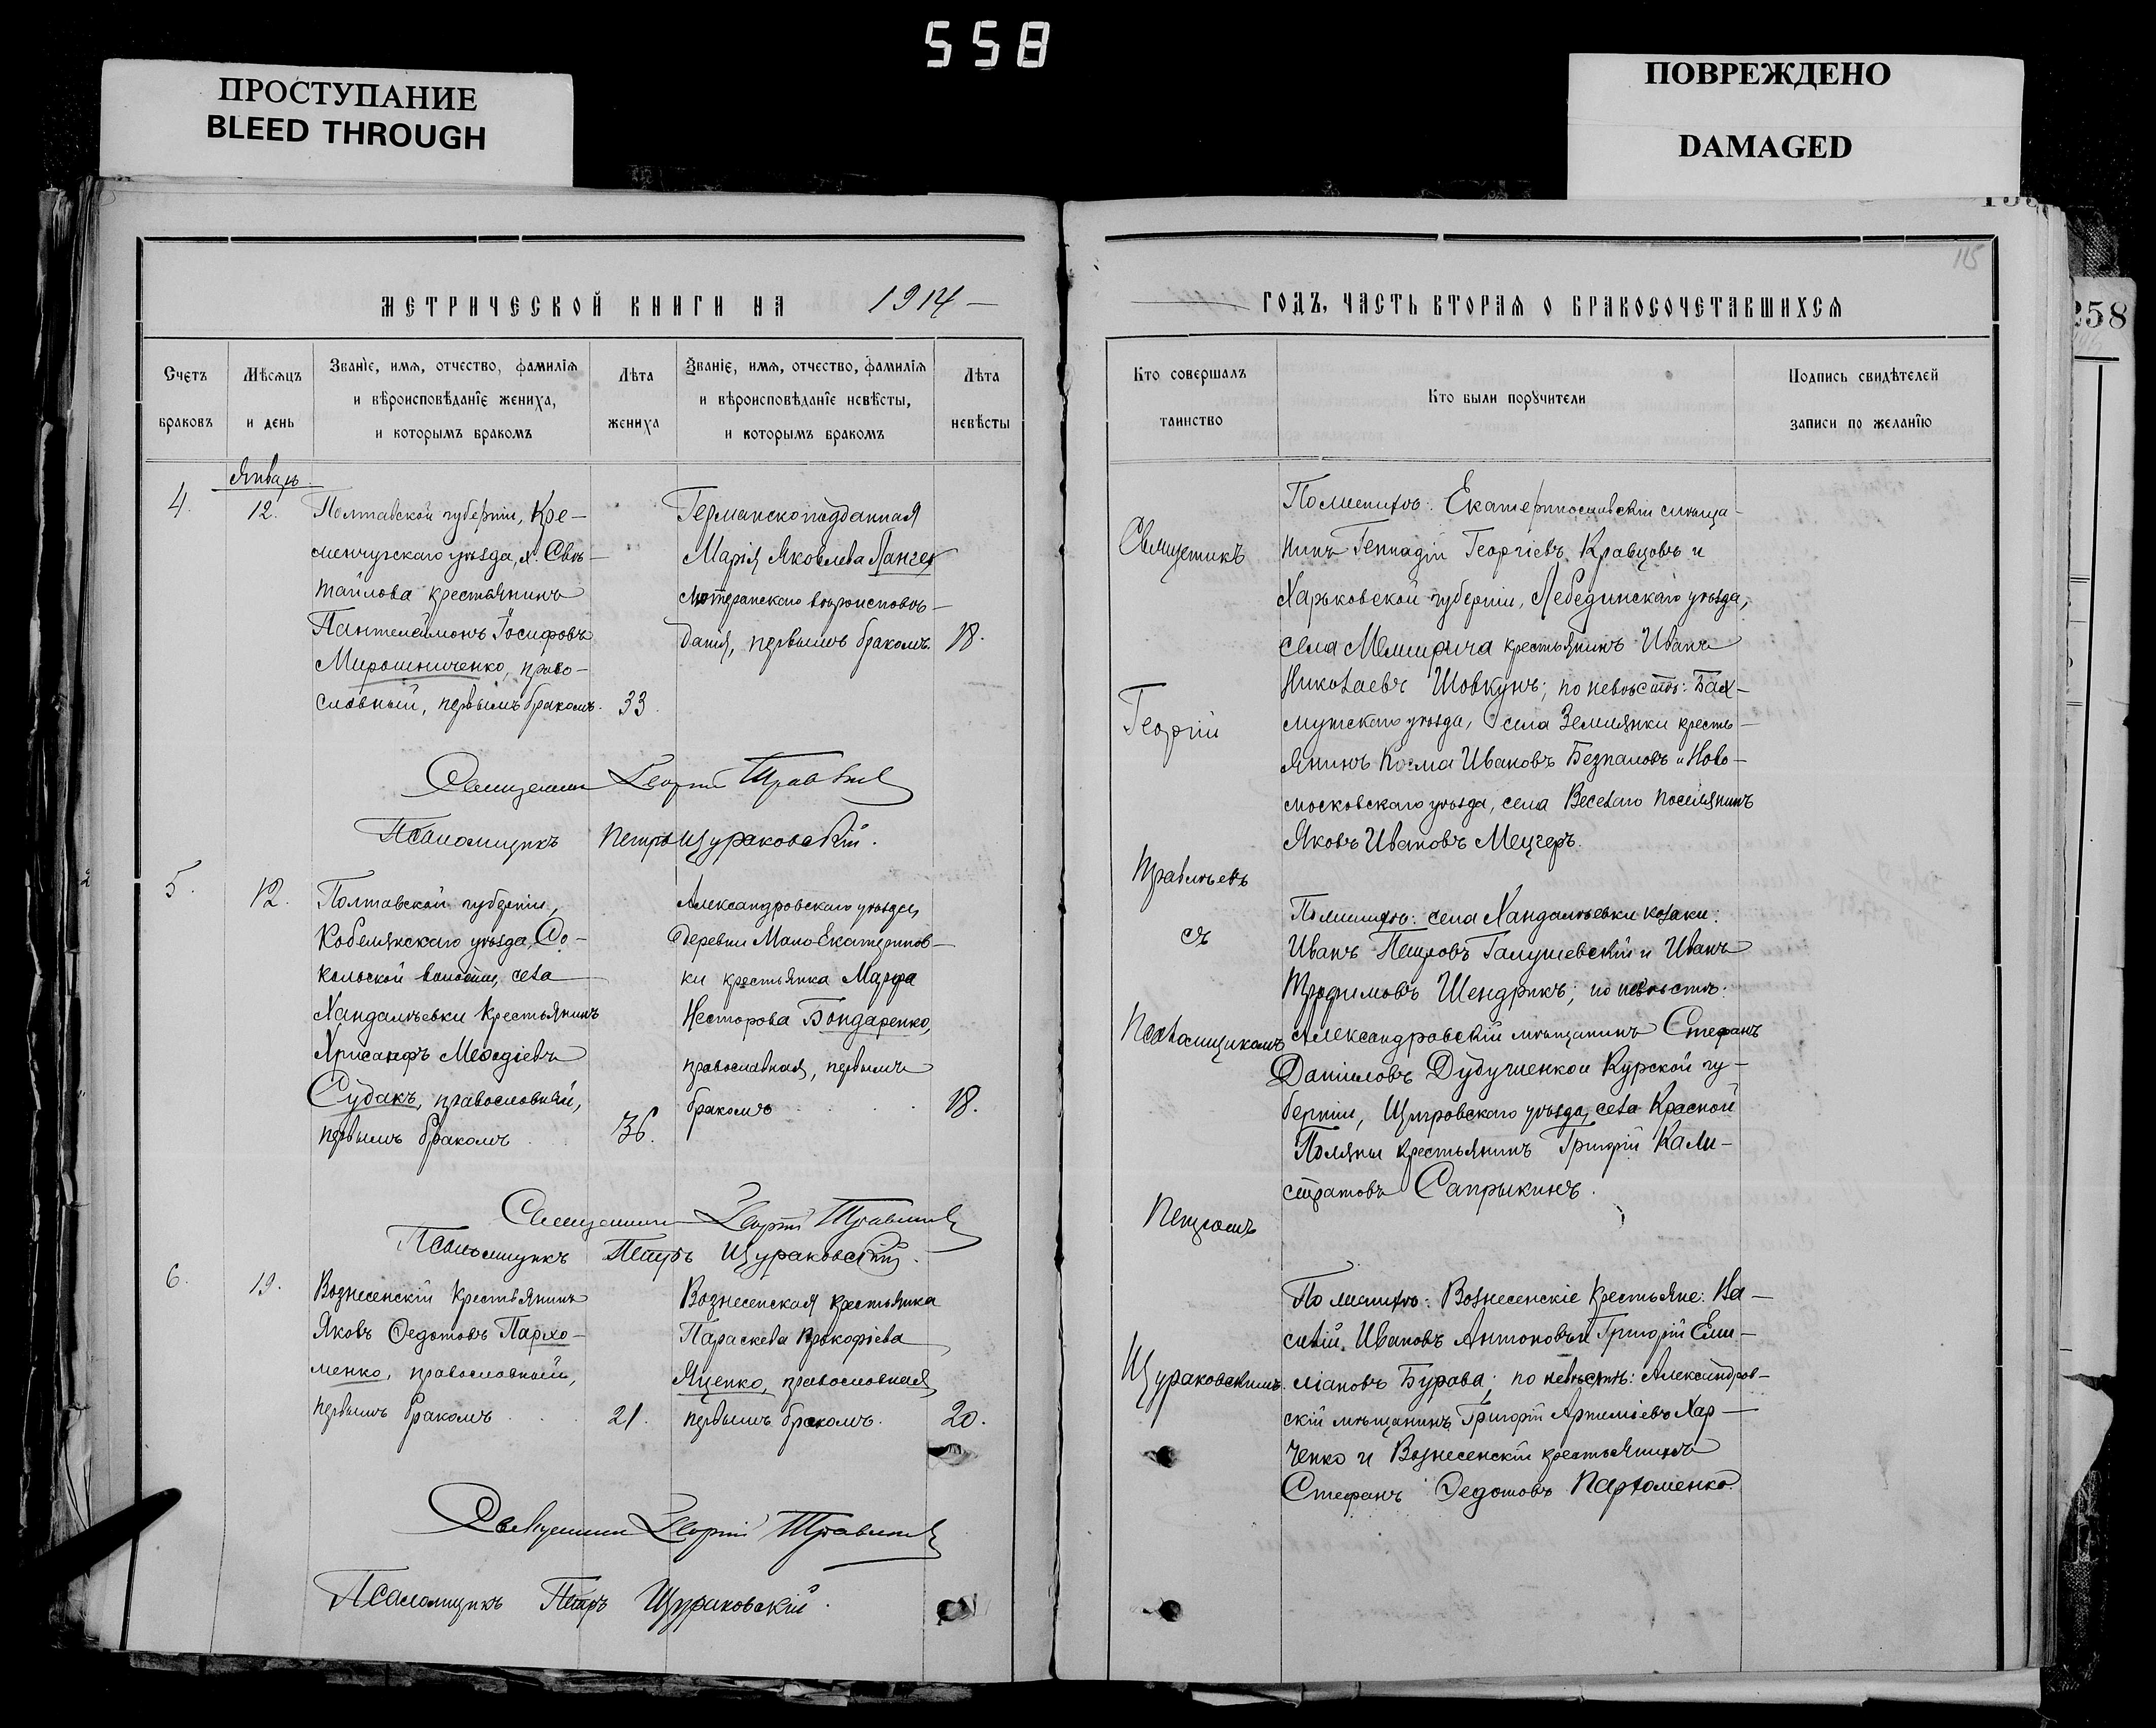 558
ПРОСТУПАНИЕ
BLEED THROUGH
ПОВРЕЖДЕНО
DAMAGED
258
115
МЕТРИЧЕСКОЙ КНИГИ НА 1914
Счетъ
браковъ
Мѣсяцъ
и день
Званіе, имя, отчество, фамилія
и вѣроисповѣданіе жениха,
и которымъ бракомъ
Лѣта
жениха
Званіе, имя, отчество, фамилія
и вѣроисповѣданіе невѣсты,
и которымъ бракомъ
Лѣта
невѣсты
Январь
4.
12.
Полтавской губерніи, Кре-
менчугскаго уѣзда, х. Свѣ-
тайлова крестьянинъ
Пантелеимонъ Іосифовъ
Мирошниченко, право-
славный, первымъ бракомъ.
33.
Германскоподданная
Марія Яковлева
лютеранскаго вѣроисповѣ-
данія, первымъ бракомъ.
18.
Священникъ Георгій
Псаломщикъ Петръ Щураковскій.
5.
12.
Полтавской губерніи,
Кобелякскаго уѣзда, Со-
кольской волости, села
Хандалѣевки крестьянинъ
Хрисанфъ Меѳодіевъ
Судакъ, православный,
первымъ бракомъ
36.
Александровскаго уѣзда,
деревни Мало-Екатеринов-
ки крестьянка Марфа
Несторова Бондаренко,
православная, первымъ
бракомъ
18.
Священникъ Георгій
Псаломщикъ Петръ Щураковскій.
6.
19.
Вознесенскій крестьянинъ
Яковъ Ѳедотовъ Пархо-
менко, православный,
первымъ бракомъ
21.
Вознесенская крестьянка
Параскева Прокофіева
Яценко, православная,
первымъ бракомъ.
20.
Священникъ Георгій
Псаломщикъ Петръ Щураковскій.
ГОДЪ, ЧАСТЬ ВТОРАЯ О БРАКОСОЧЕТАВШИХСЯ
Кто совершалъ
таинство
Кто были поручители
Подпись свидѣтелей
записи по желанію
Священникъ
Георгій
съ
Псаломщикомъ
Петромъ
Щураковскимъ.
По женихѣ: Екатеринославскій мѣща-
нинъ Геннадій Георгіевъ Кравцовъ и
Харьковской губерніи, Лебединскаго уѣзда,
села крестьянинъ Иванъ
Николаевъ Шовкунъ; по невѣстѣ: Бах-
мутскаго уѣзда, села Землянки кресть-
янинъ Косма Ивановъ Безпаловъ и Ново-
московскаго уѣзда, села Веселаго поселянинъ
Яковъ Ивановъ Мецгеръ.
По женихѣ: села Хандалѣевки козаки:
Иванъ Петровъ Галушевскій и Иванъ
Трофимовъ Шендрикъ; по невѣстѣ:
Александровскій мѣщанинъ Стефанъ
Даниловъ Дубученко и Курской гу-
берніи, Щигровскаго уѣзда, села Красной
Поляны крестьянинъ Григорій Кали-
стратовъ Сапрыкинъ.
По женихѣ: Вознесенскіе крестьяне: Ва-
силій Ивановъ Антоновъ и Григорій Еми-
ліановъ Бурава; по невѣстѣ: Александров-
скій мѣщанинъ Григорій Артеміевъ Хар-
ченко и Вознесенскій крестьянинъ
Стефанъ Ѳедотовъ Пархоменко.